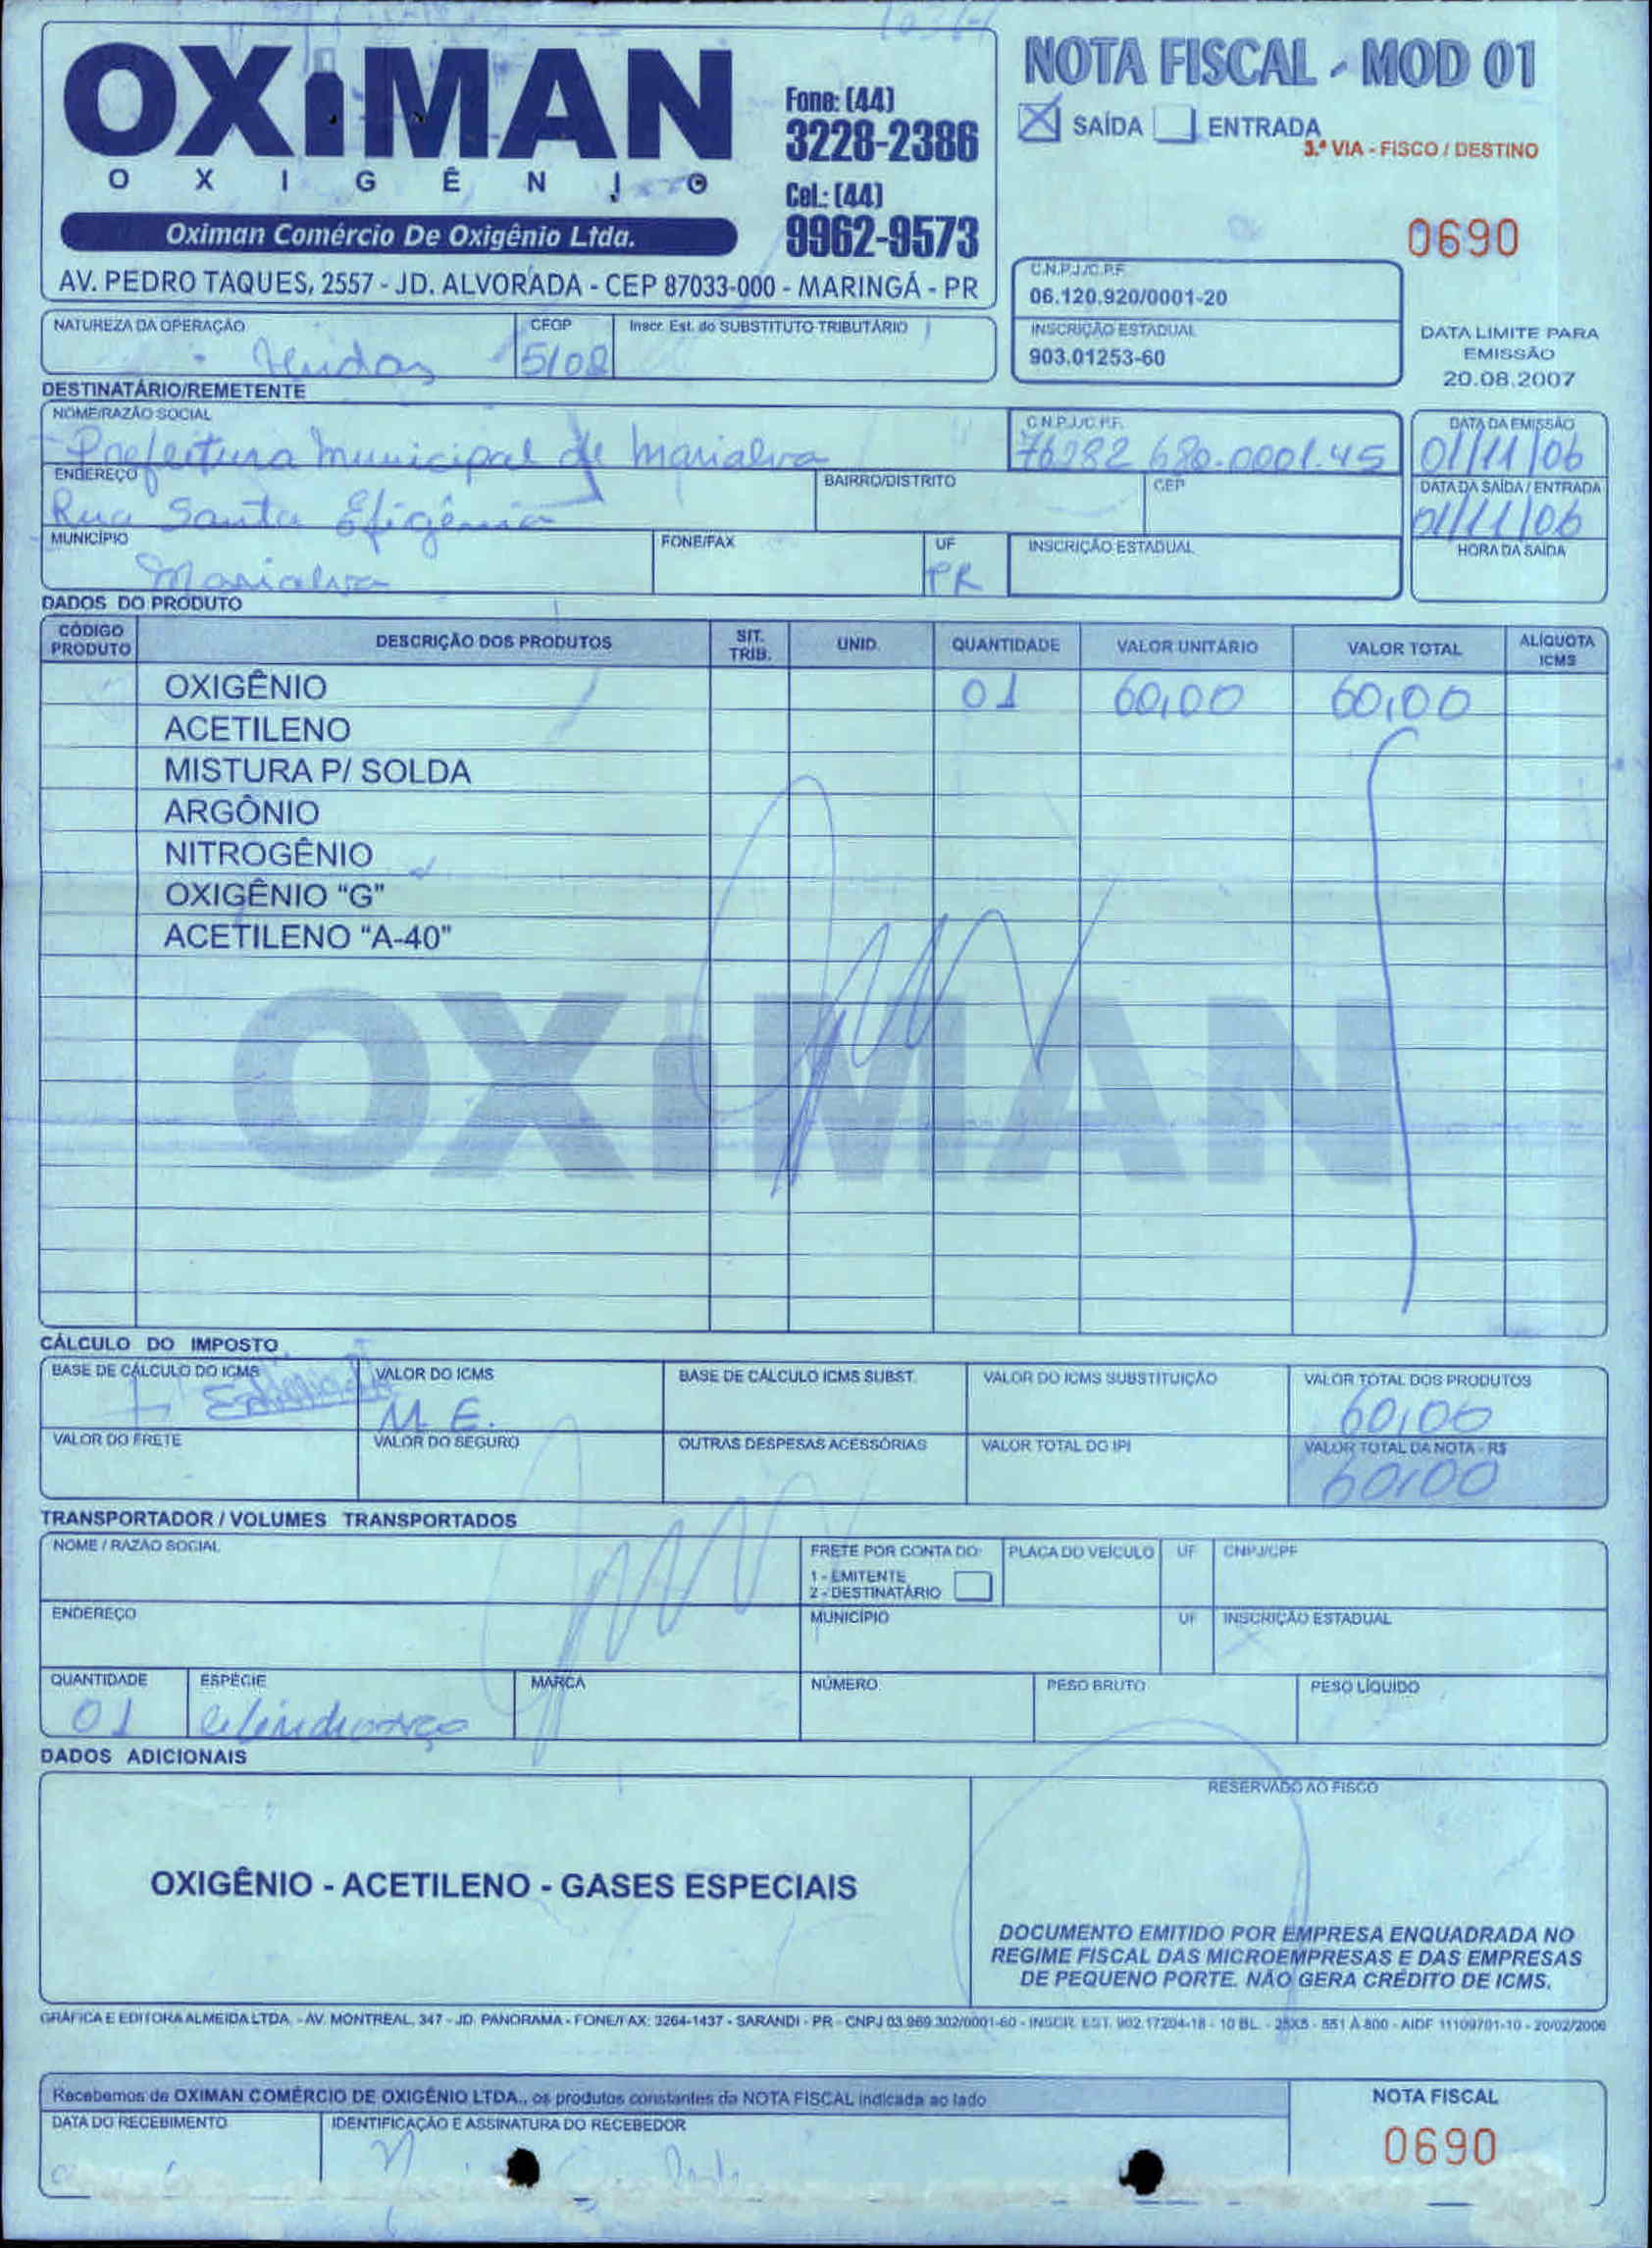 OXiMAN
OXIGÊNIO
Oximan Comércio De Oxigênio Ltda.
Fone: (44)
3228-2386
Cel.: (44)
9962-9573
AV. PEDRO TAQUES, 2557 - JD. ALVORADA - CEP 87033-000 - MARINGÁ - PR
NOTA FISCAL - MOD 01
X SAÍDA ENTRADA
3.ª VIA - FISCO / DESTINO
0690
C.N.P.J./C.P.F.
06.120.920/0001-20
INSCRIÇÃO ESTADUAL
903.01253-60
DATA LIMITE PARA
EMISSÃO
20.08.2007
NATUREZA DA OPERAÇÃO CFOP Inscr. Est. do SUBSTITUTO TRIBUTÁRIO
Vendas 5102
DESTINATÁRIO/REMETENTE
NOME/RAZÃO SOCIAL C.N.P.J./C.P.F. DATA DA EMISSÃO
Prefeitura Municipal de Marialva 76282 680.0001.45 01/11/06
ENDEREÇO BAIRRO/DISTRITO CEP DATA DA SAÍDA / ENTRADA
Rua Santa Efigênia 01/11/06
MUNICÍPIO FONE/FAX UF INSCRIÇÃO ESTADUAL HORA DA SAÍDA
Marialva PR
DADOS DO PRODUTO
CÓDIGO PRODUTO DESCRIÇÃO DOS PRODUTOS SIT. TRIB. UNID. QUANTIDADE VALOR UNITÁRIO VALOR TOTAL ALÍQUOTA ICMS
OXIGÊNIO 01 60,00 60,00
ACETILENO
MISTURA P/ SOLDA
ARGÔNIO
NITROGÊNIO
OXIGÊNIO "G"
ACETILENO "A-40"
OXiMAN
CÁLCULO DO IMPOSTO
BASE DE CÁLCULO DO ICMS VALOR DO ICMS BASE DE CÁLCULO ICMS SUBST. VALOR DO ICMS SUBSTITUIÇÃO VALOR TOTAL DOS PRODUTOS
M.E. 60,00
VALOR DO FRETE VALOR DO SEGURO OUTRAS DESPESAS ACESSÓRIAS VALOR TOTAL DO IPI VALOR TOTAL DA NOTA - R$
60,00
TRANSPORTADOR / VOLUMES TRANSPORTADOS
NOME / RAZÃO SOCIAL FRETE POR CONTA DO: PLACA DO VEÍCULO UF CNPJ/CPF
1 - EMITENTE
2 - DESTINATÁRIO
ENDEREÇO MUNICÍPIO UF INSCRIÇÃO ESTADUAL
QUANTIDADE ESPÉCIE MARCA NÚMERO PESO BRUTO PESO LÍQUIDO
01
DADOS ADICIONAIS
RESERVADO AO FISCO
OXIGÊNIO - ACETILENO - GASES ESPECIAIS
DOCUMENTO EMITIDO POR EMPRESA ENQUADRADA NO
REGIME FISCAL DAS MICROEMPRESAS E DAS EMPRESAS
DE PEQUENO PORTE. NÃO GERA CRÉDITO DE ICMS.
GRÁFICA E EDITORA ALMEIDA LTDA. - AV. MONTREAL, 347 - JD. PANORAMA - FONE/FAX: 3264-1437 - SARANDI - PR - CNPJ 03.969.302/0001-60 - INSCR. EST. 902.17204-18 - 10 BL. - 25X5 - 551 A 800 - AIDF 11109701-10 - 20/02/2006
Recebemos de OXIMAN COMÉRCIO DE OXIGÊNIO LTDA., os produtos constantes da NOTA FISCAL indicada ao lado
NOTA FISCAL
DATA DO RECEBIMENTO IDENTIFICAÇÃO E ASSINATURA DO RECEBEDOR
0690